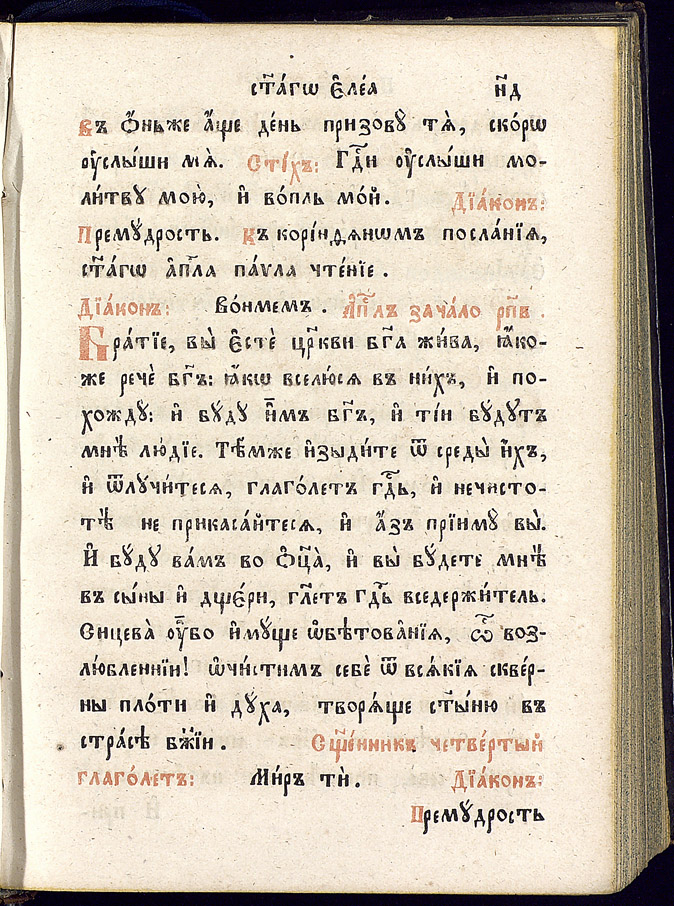 ст҃а́гѡ є҆ле́а н҃д
въ ѻ҆́ньже а҆́ще де́нь призовꙋ̀ тѧ̀, ско́рѡ
ᲂу҆слы́ши мѧ̀. Сті́хъ: Гдⷭ҇и ᲂу҆слы́ши мо-
ли́твꙋ мою̀, и҆ во́пль мо́й. Дїа́конъ:
Премꙋ́дрость. Къ корі́нѳѧнѡмъ посла́нїѧ,
ст҃а́гѡ а҆пⷭ҇ла па́ѵла чте́нїе.
Дїа́конъ: Во́нмемъ. А҆пⷭ҇лъ зача́ло рп҃в.
Бра́тїе, вы̀ є҆стѐ цр҃кви бг҃а жи́ва, ꙗ҆́ко-
же речѐ бг҃ъ: ꙗ҆́кѡ вселю́сѧ въ ни́хъ, и҆ по-
хождꙋ̀: и҆ бꙋ́дꙋ и҆̀мъ бг҃ъ, и҆ ті́и бꙋ́дꙋтъ
мнѣ̀ лю́дїе. Тѣ́мже и҆зыди́те ѿ среды̀ и҆́хъ,
и҆ ѿлꙋчи́тесѧ, глаго́летъ гдⷭ҇ь, и҆ нечисто-
тѣ̀ не прикаса́йтесѧ, и҆ а҆́зъ прїимꙋ̀ вы̀.
И҆ бꙋ́дꙋ ва́мъ во ѻ҆ц҃а̀, и҆ вы̀ бꙋ́дете мнѣ̀
въ сы́ны и҆ дще́ри, гл҃етъ гдⷭ҇ь вседержи́тель.
Сицева̀ ᲂу҆̀бо и҆мꙋ́ще ѡ҆бѣтова̑нїѧ, ѽ воз-
лю́бленнїи! ѡ҆чи́стимъ себѐ ѿ всѧ́кїѧ скве́р-
ны пло́ти и҆ дꙋ́ха, творѧ́ще ст҃ы́ню въ
стра́сѣ бж҃їи. Сщ҃е́нникъ четве́ртый
глаго́летъ: Ми́ръ тѝ. Дїа́конъ:
Премꙋ́дрость